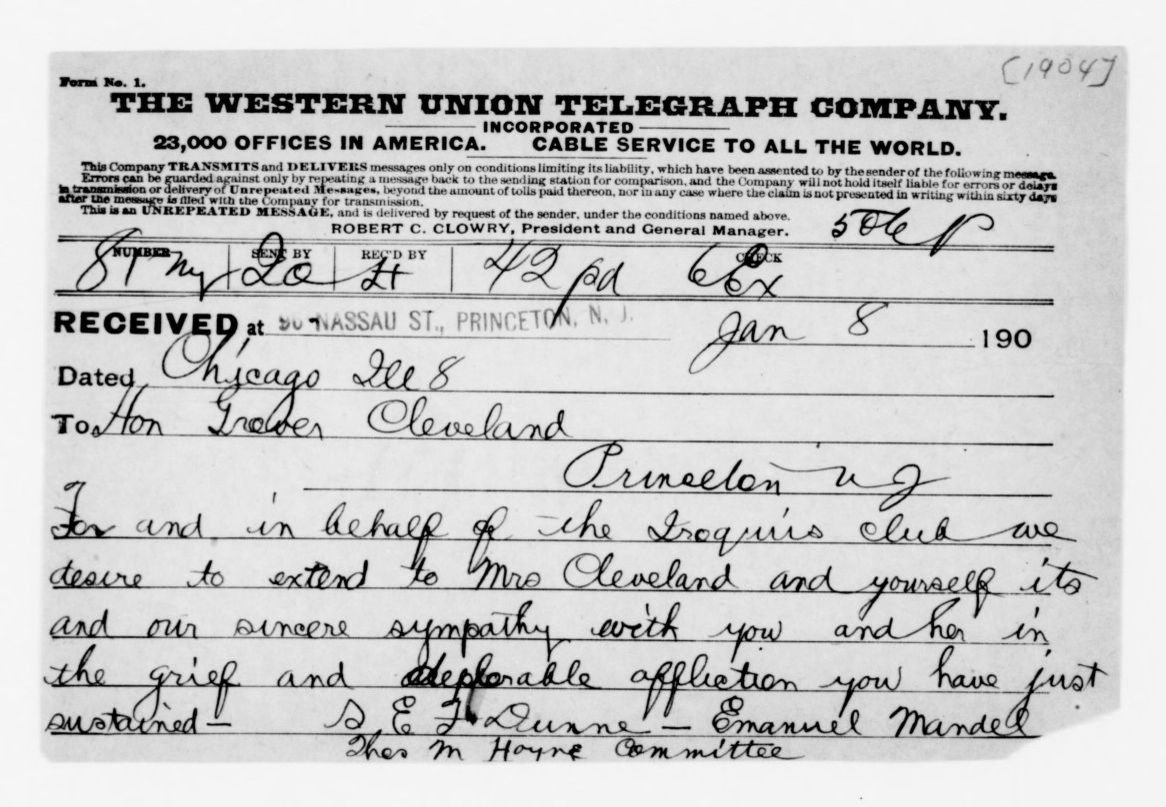 [1904]
Form No. 1.
THE WESTERN UNION TELEGRAPH COMPANY.
INCORPORATED
23,000 OFFICES IN AMERICA. CABLE SERVICE TO ALL THE WORLD.
This Company TRANSMITS and DELIVERS messages only on conditions limiting its liability, which have been assented to by the sender of the following message.
Errors can be guarded against only by repeating a message back to the sending station for comparison, and the Company will not hold itself liable for errors or delays
in transmission or delivery of Unrepeated Messages, beyond the amount of tolls paid thereon, nor in any case where the claim is not presented in writing within sixty days
after the message is filed with the Company for transmission.
This is an UNREPEATED MESSAGE, and is delivered by request of the sender, under the conditions named above.
ROBERT C. CLOWRY, President and General Manager. 506 P
NUMBER SENT BY REC'D BY CHECK
87 Ny 42 pd
RECEIVED at NASSAU ST., PRINCETON, N. J. Jan 8 190
Dated Chicago Ill 8
To Hon Grover Cleveland
Princeton N J
For and in behalf of the Iroquis club we
desire to extend to Mrs Cleveland and yourself its
and our sincere sympathy with you and her in
the grief and deplorable affliction you have just
sustained — E F Dunne — Emanuel Mandel
Thos M Hoyne Committee